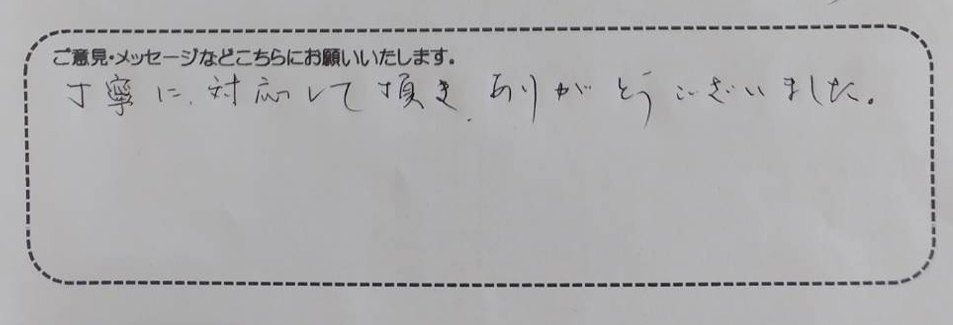 ご意見・メッセージなどこちらにお願いいたします。
丁寧に、対応して頂き、ありがとうございました。